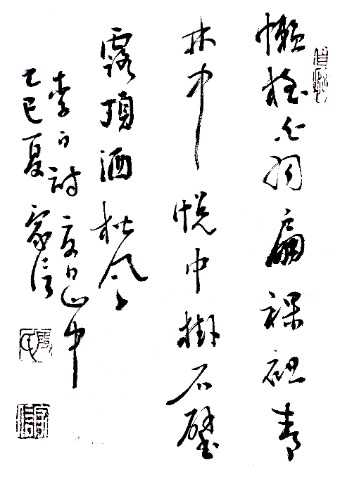 懶搖白羽扇裸袒青
林中脫巾掛石壁
露頂洒松風
李白詩夏日山中
乙巳夏家信